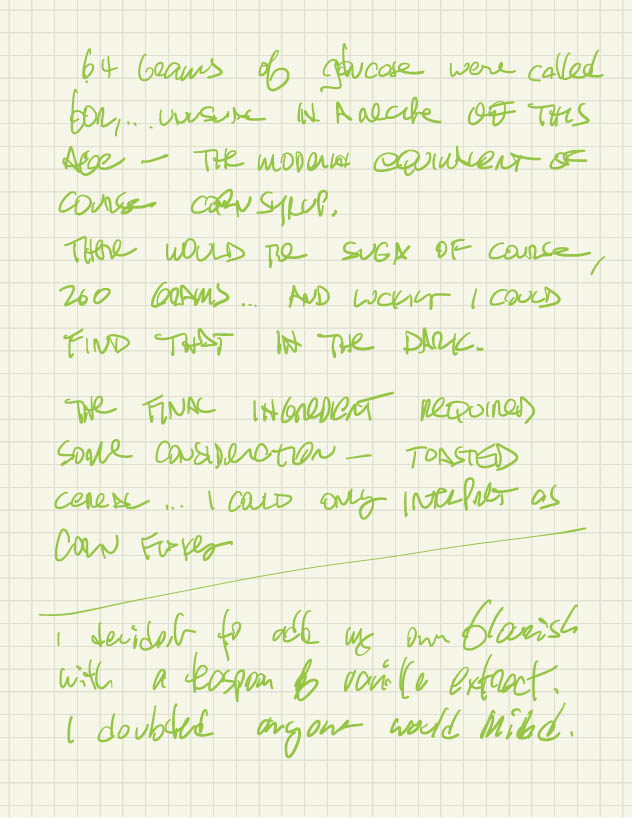 64 Grams of glucose were called
for,... unusual IN A recipe OF THIS
Age — THE MODERN equivalent OF
COURSE CORN SYRUP.
THERE WOULD BE SUGAR OF COURSE,
260 GRAMS... AND LUCKILY I COULD
FIND THAT IN THE DARK.
THE FINAL INGREDIENT REQUIRED
SOME CONSIDERATION — TOASTED
CEREAL... I COULD only INTERPRET as
CORN FLAKES
I decided to add my own flourish
with a teaspoon of vanilla extract.
I doubted anyone would Mind.